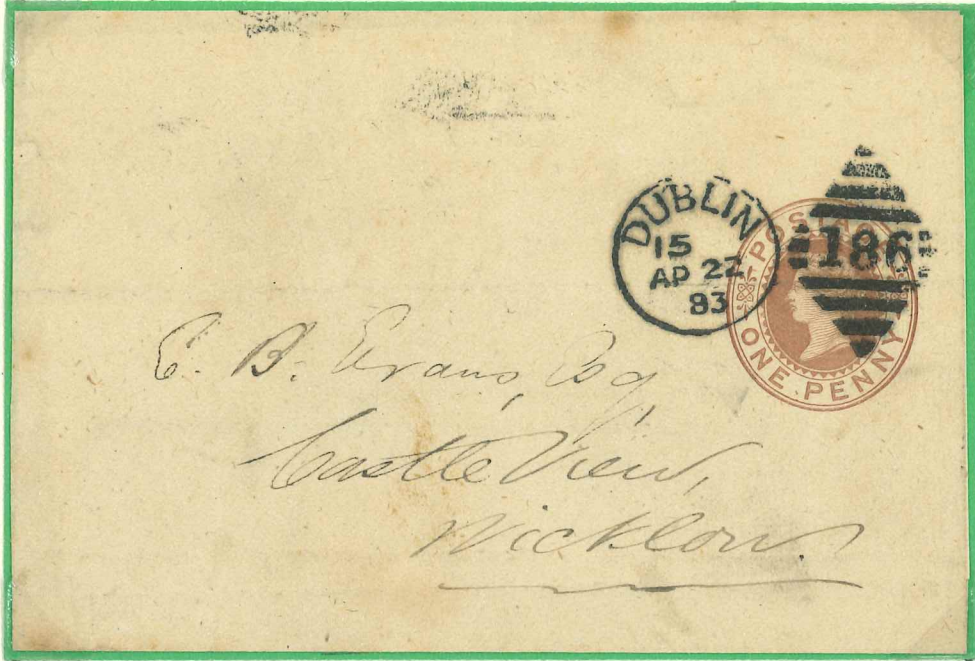 DUBLIN
15
AP 22
83
186
POSTAGE
ONE PENNY
E. B. Evans, Esq
Castle View,
Wicklow